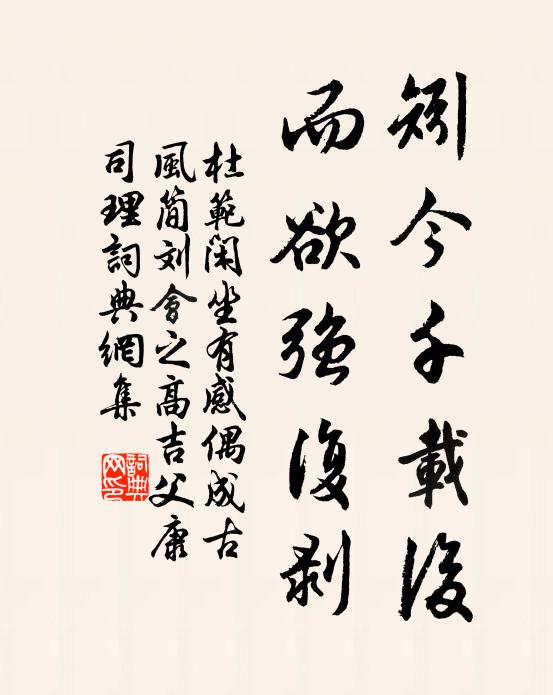 矧今千載後
而欲強復剥
杜範閑坐有感偶成古
風簡刘會之高吉父康
司理詞典網集
詞典网印